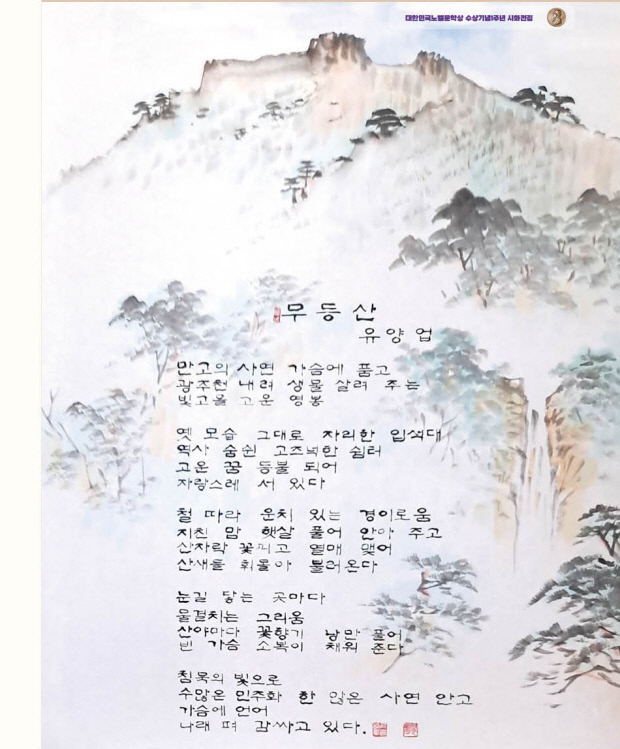 대한민국노벨문학상 수상기념1주년 시화전집
무등산
유양업
만고의 사연 가슴에 품고
광주천 내려 생물 살려 주는
빛고을 고운 영봉
옛 모습 그대로 자리한 입석대
역사 숨쉰 고즈넉한 쉼터
고운 꿈 등불 되어
자랑스레 서 있다
철 따라 운치 있는 경이로움
지친 맘 햇살 풀어 안아 주고
산자락 꽃피고 열매 맺어
산새들 휘몰아 불러온다
눈길 닿는 곳마다
물결치는 그리움
산야마다 꽃향기 낭만 풀어
빈 가슴 소복이 채워 준다
침묵의 빛으로
수많은 민주화 한 많은 사연 안고
가슴에 언어
나래 펴 감싸고 있다.